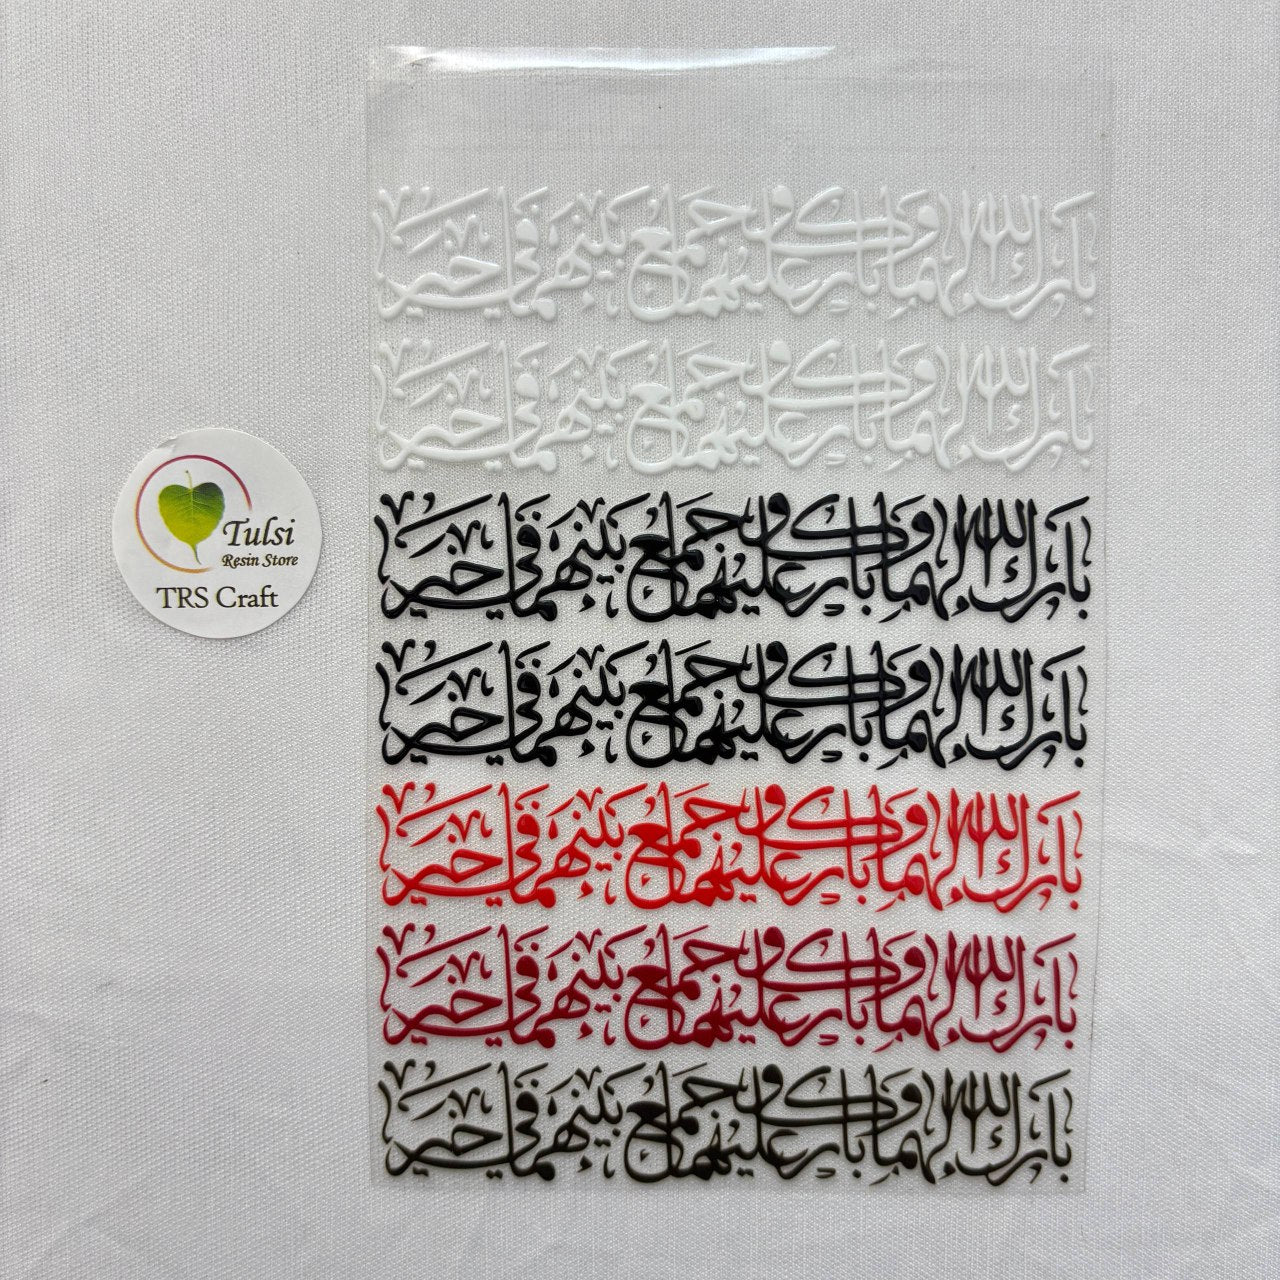 بارك الله لهما وبارك عليهما وجمع بينهما في خير
بارك الله لهما وبارك عليهما وجمع بينهما في خير
بارك الله لهما وبارك عليهما وجمع بينهما في خير
بارك الله لهما وبارك عليهما وجمع بينهما في خير
بارك الله لهما وبارك عليهما وجمع بينهما في خير
بارك الله لهما وبارك عليهما وجمع بينهما في خير
بارك الله لهما وبارك عليهما وجمع بينهما في خير
Tulsi
Resin Store
TRS Craft